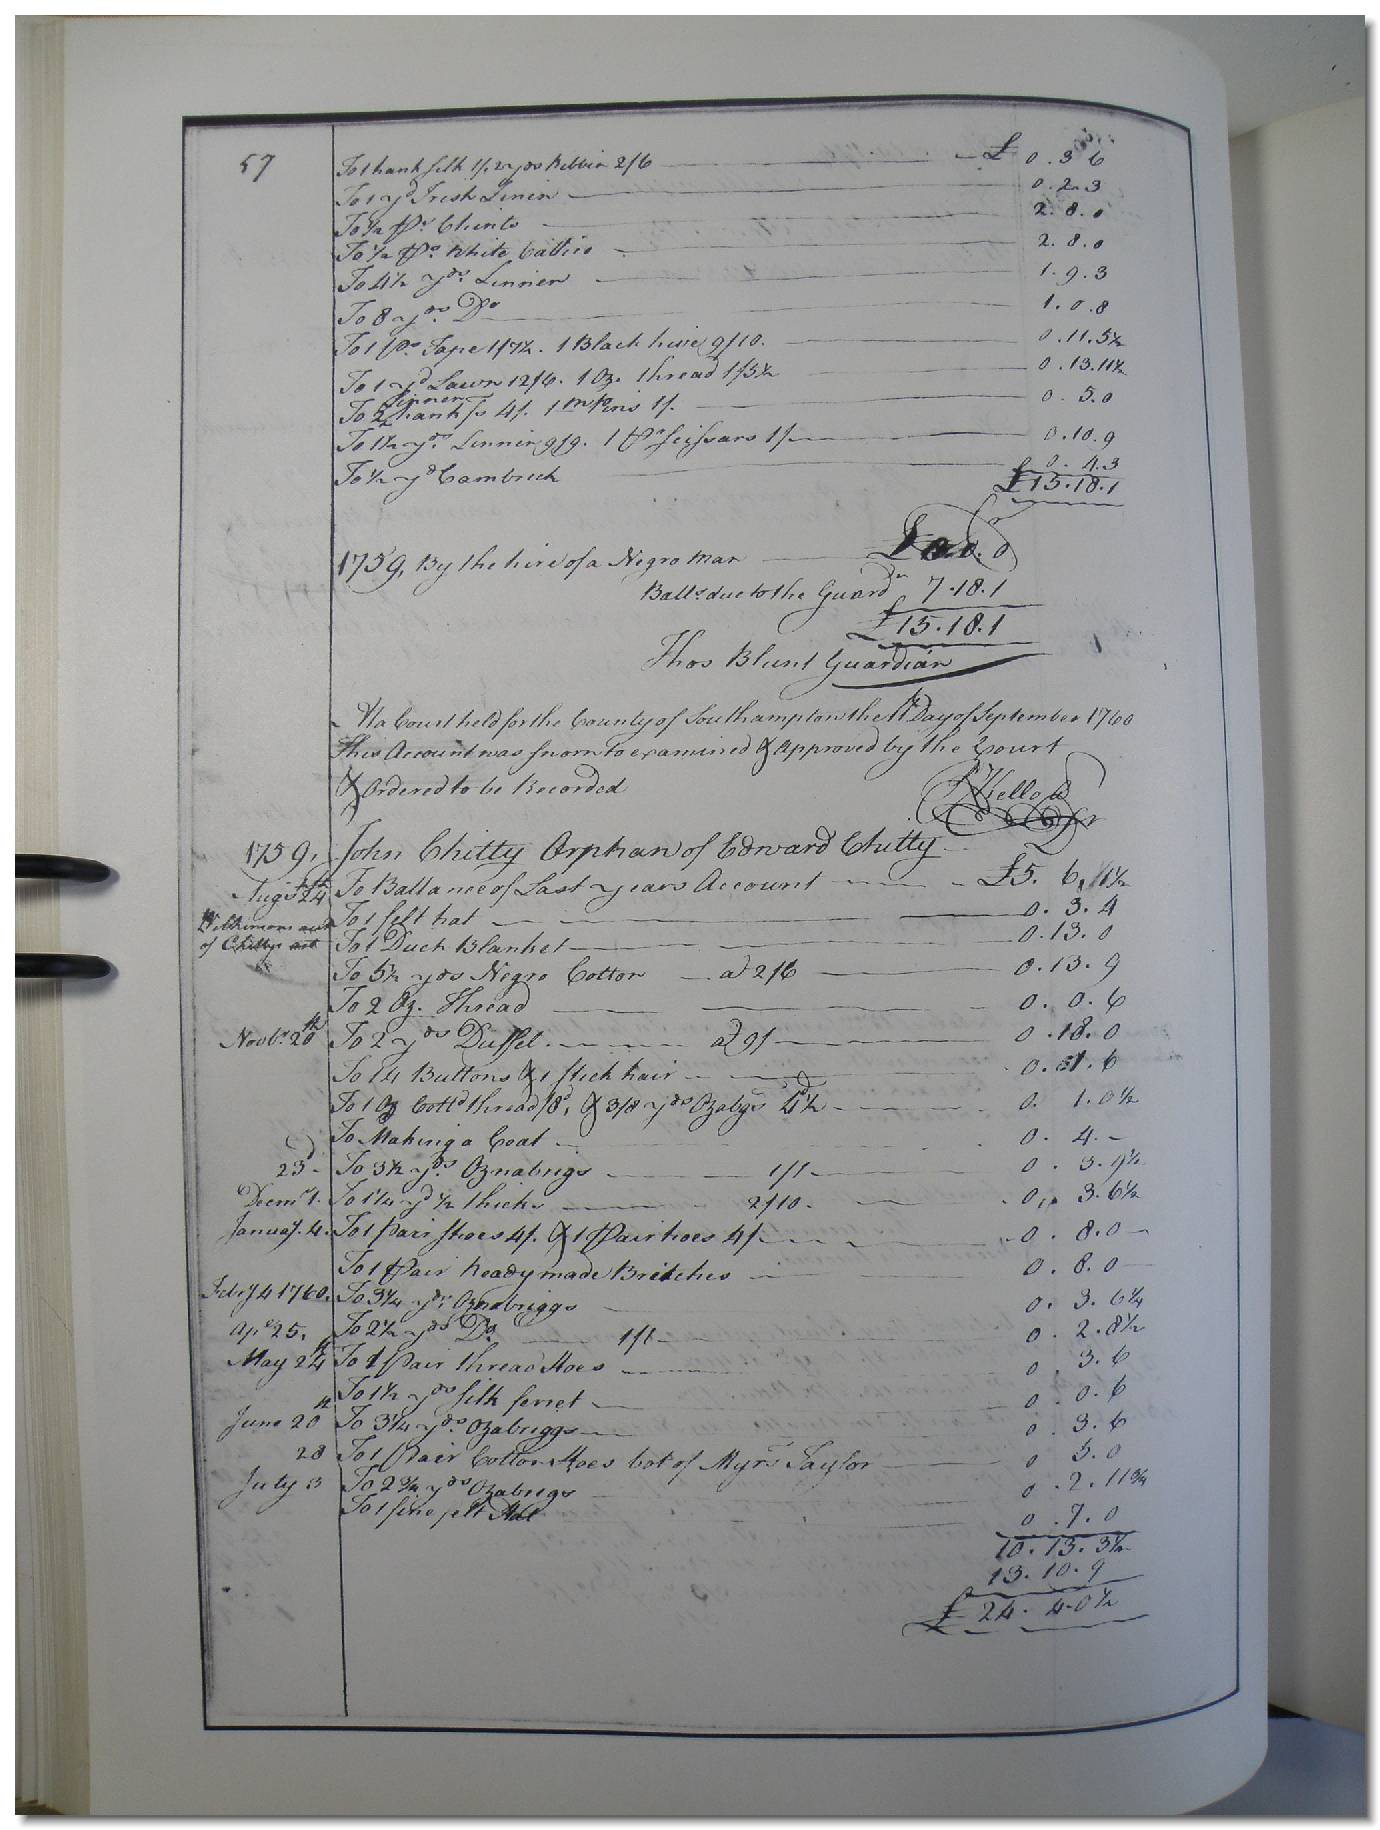 57 To 1 hank silk 1/. 2 yds Ribbin 2/6 £ 0. 3 6
To 1 yd Irish Linin 0. 2. 3
To ½ ps. Chints 2. 8. 0
To ½ ps. White Callico 2. 8. 0
To 4½ yds. Linnen 1. 9. 3
To 8 yds. Do 1. 0. 8
To 1 ps. Tape 1/7½. 1 Black hive 9/10. 0. 11. 5½
To 1 yd Lawn 12/6. 1 Oz. thread 1/5½ 0. 13. 11½
To 2 Linnen hankfs 4/. 1 m pins 1/. 0. 5. 0
To 1½ yds. Linnin 9/9. 1 pr scissars 1/ 0. 10. 9
To ½ yd Cambrick 0. 4. 3
£15. 18. 1
1759, By the hire of a Negro man 0. 0
Balla due to the Guardn 7. 18. 1
£15. 18. 1
Thos Blunt Guardian
At a Court held for the County of Southampton the 11 Day of September 1760
This Account was sworn to examined & Approved by the Court
& Ordered to be Recorded
R Kello
1759. John Chitty Orphan of Edward Chitty
Augst 24th To Ballance of Last years Account £5. 6. 11½
To 1 felt hat 0. 3. 4
of Chittys To 1 Duck Blanket 0. 13. 0
To 5½ yds Negro Cotton ad 2/6 0. 13. 9
To 2 Oz. Thread 0. 0. 6
Novbr. 20th To 2 yds Duffel. ad 9/ 0. 18. 0
To 14 Buttons & 1 stick hair 0. 1. 6
To 1 Oz Colld thread /8d, & 3/8 yds Ozabgs 4½d 0. 1. 0½
To Making a Coat 0. 4. -
23d To 3½ yds. Oznabrigs 1/1 0. 3. 9½
Decmr 1. To 1¼ yd ½ thicks 2/10. 0. 3. 6½
Januay. 4. To 1 pair shoes 4/. & 1 pair hoes 4/ 0. 8. 0
To 1 pair Ready made Britches 0. 8. 0
Feby 4 1760. To 3¼ yds Oznabriggs 0. 3. 6¼
Apl 25. To 2½ yds Do. 1/1 0. 2. 8½
May 24th To 1 pair thread Hoes 0 3. 6
To 1½ yds silk ferret 0. 0. 6
June 20th To 3¼ yds. Ozabriggs 0. 3. 6
28 To 1 pair Cotton Hoes bot of Myrs Taylor 0 5. 0
July 3 To 2¾ yds Ozabrigs 0. 2. 11¾
To 1 fine felt Hat 0. 7. 0
10. 13. 3½
13. 10. 9
£ 24. 4. 0½